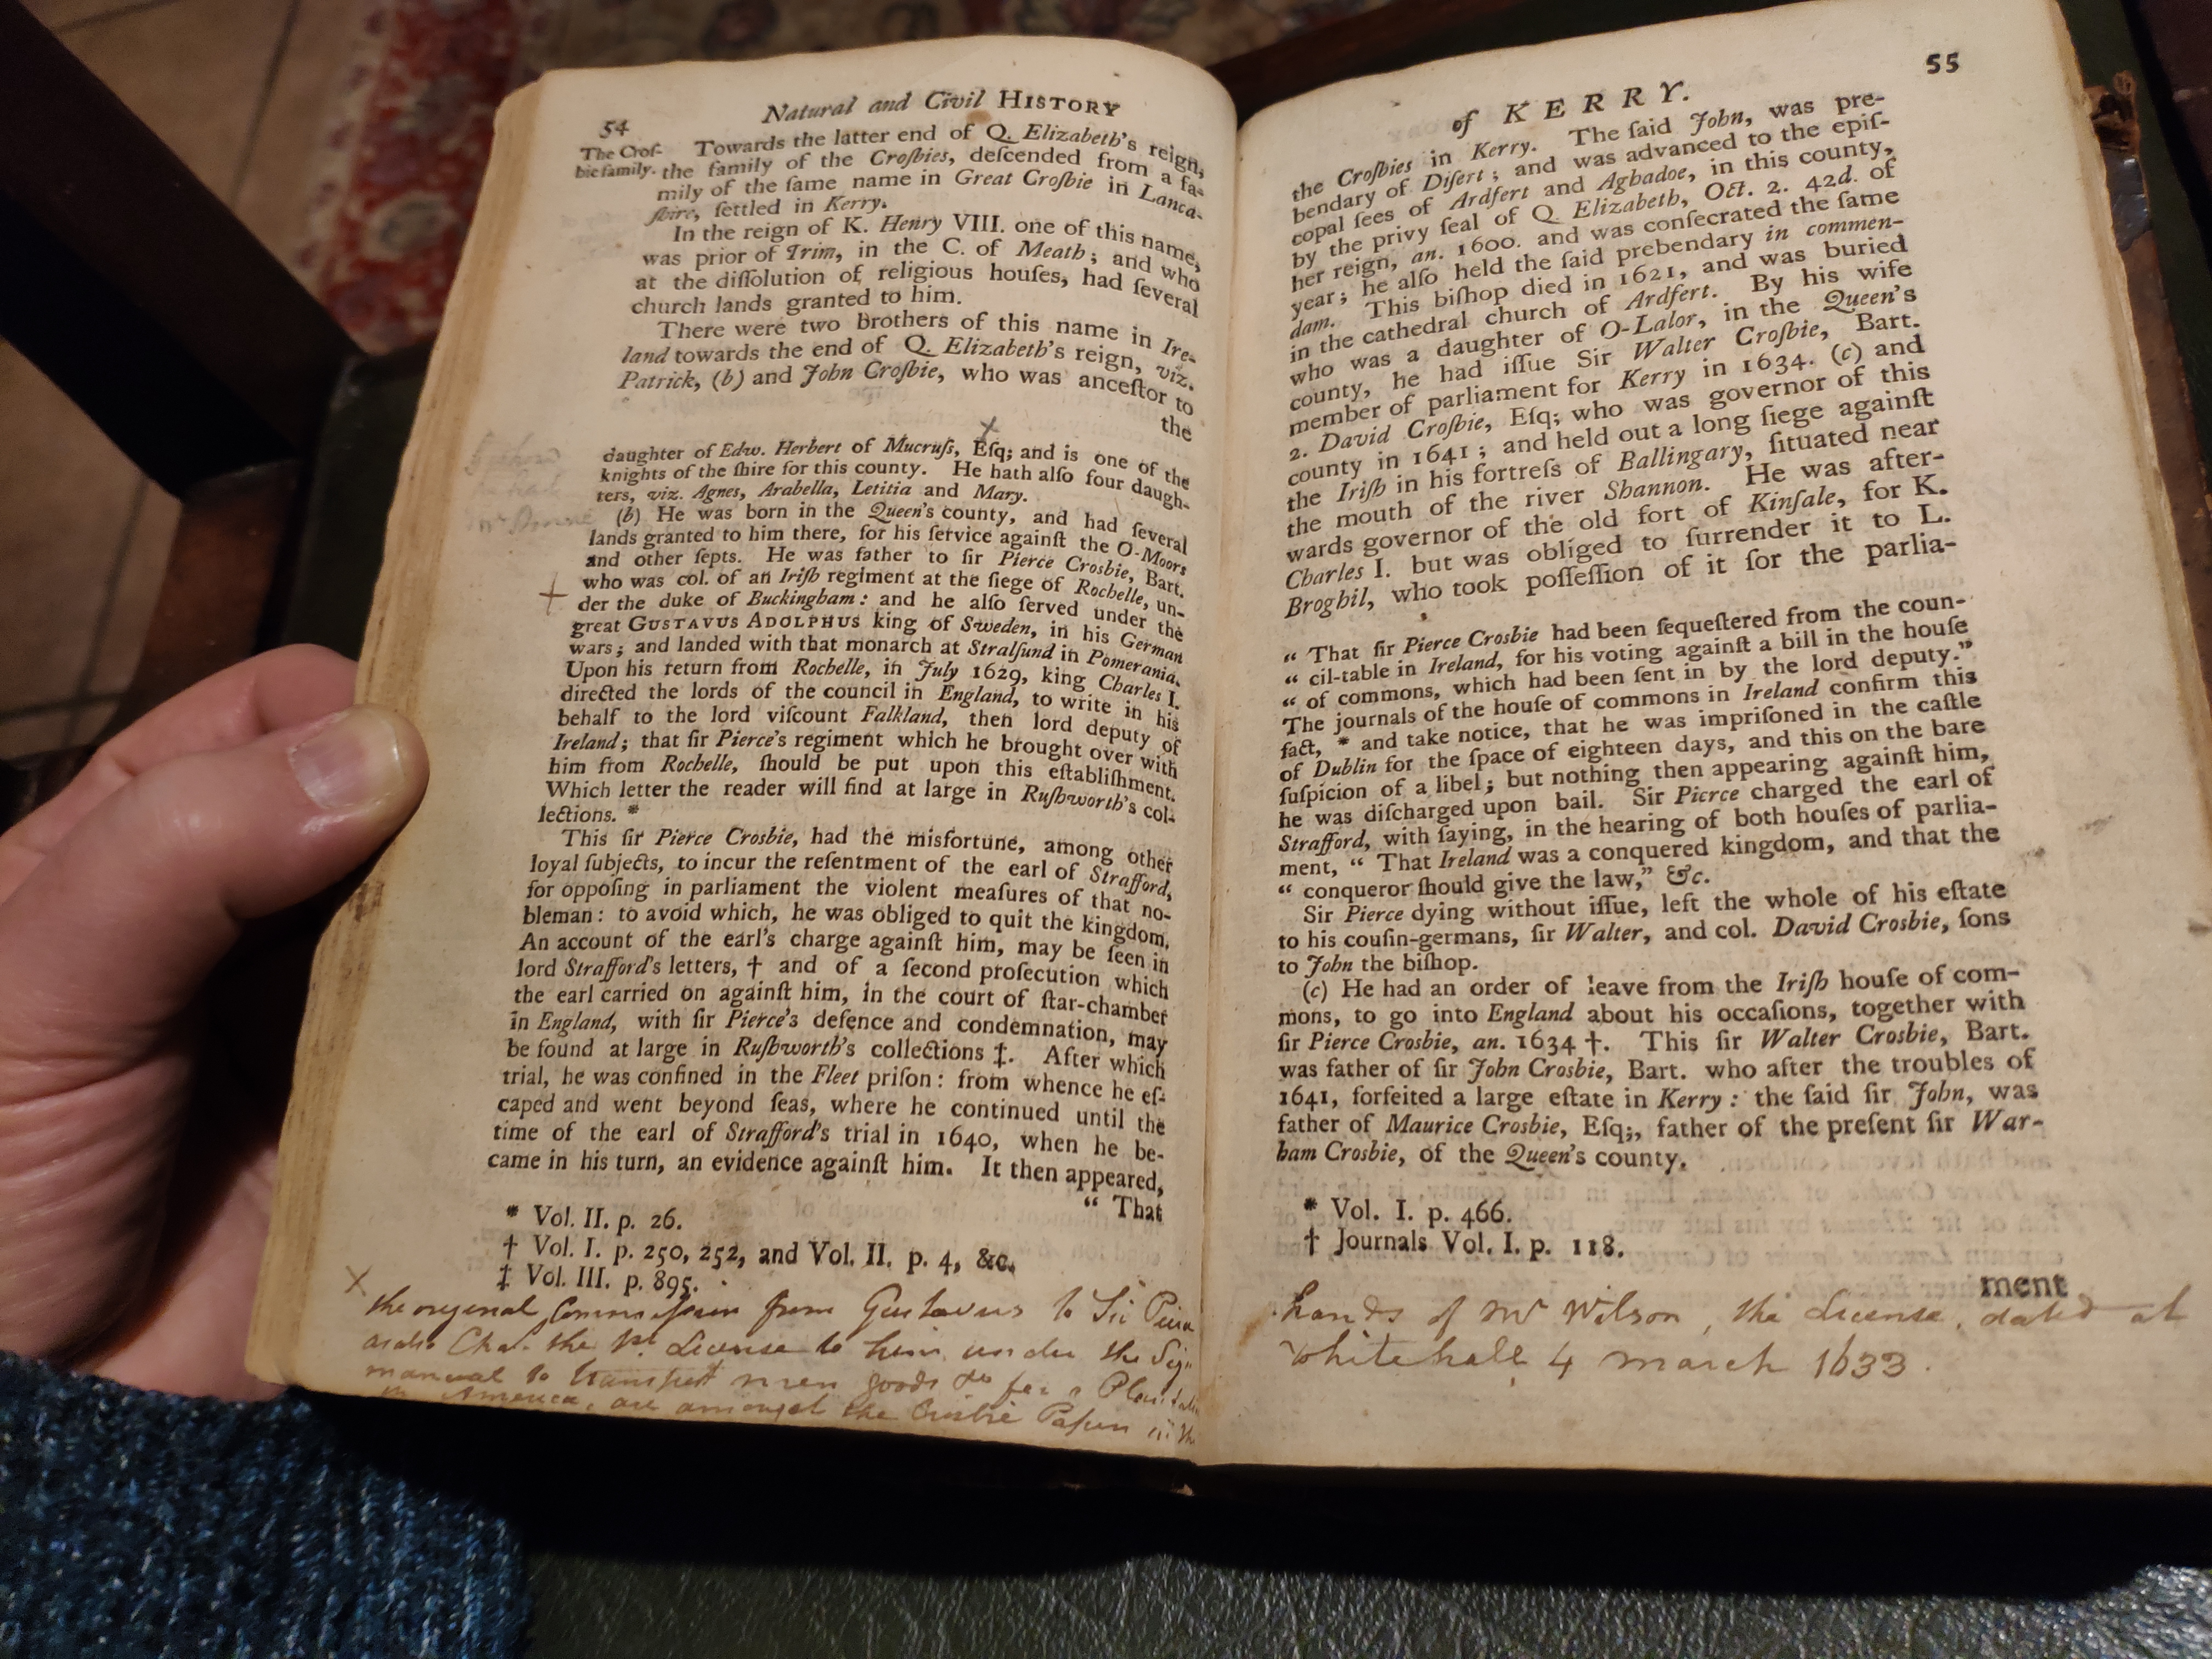 54
Natural and Civil HISTORY
The Croſ-
bie family.
Towards the latter end of Q. Elizabeth's reign,
the family of the Croſbies, deſcended from a fa-
mily of the ſame name in Great Croſbie in Lanca-
ſhire, ſettled in Kerry.
In the reign of K. Henry VIII. one of this name,
was prior of Trim, in the C. of Meath; and who
at the diſſolution of religious houſes, had ſeveral
church lands granted to him.
There were two brothers of this name in Ire-
land towards the end of Q. Elizabeth's reign, viz.
Patrick, (b) and John Croſbie, who was anceſtor to
the
daughter of Edw. Herbert of Mucruſs, Eſq; and is one of the
knights of the ſhire for this county. He hath alſo four daugh-
ters, viz. Agnes, Arabella, Letitia and Mary.
(b) He was born in the Queen's county, and had ſeveral
lands granted to him there, for his ſervice againſt the O-Moors
and other ſepts. He was father to ſir Pierce Crosbie, Bart.
who was col. of an Iriſh regiment at the ſiege of Rochelle, un-
der the duke of Buckingham: and he alſo ſerved under the
great GUSTAVUS ADOLPHUS king of Sweden, in his German
wars; and landed with that monarch at Stralſund in Pomerania.
Upon his return from Rochelle, in July 1629, king Charles I.
directed the lords of the council in England, to write in his
behalf to the lord viſcount Falkland, then lord deputy of
Ireland; that ſir Pierce's regiment which he brought over with
him from Rochelle, ſhould be put upon this eſtabliſhment.
Which letter the reader will find at large in Ruſhworth's col-
lections. *
This ſir Pierce Crosbie, had the misfortune, among other
loyal ſubjects, to incur the reſentment of the earl of Strafford,
for oppoſing in parliament the violent meaſures of that no-
bleman: to avoid which, he was obliged to quit the kingdom.
An account of the earl's charge againſt him, may be ſeen in
lord Strafford's letters, † and of a ſecond proſecution which
the earl carried on againſt him, in the court of ſtar-chamber
in England, with ſir Pierce's defence and condemnation, may
be found at large in Ruſhworth's collections ‡. After which
trial, he was confined in the Fleet priſon: from whence he eſ-
caped and went beyond ſeas, where he continued until the
time of the earl of Strafford's trial in 1640, when he be-
came in his turn, an evidence againſt him. It then appeared,
“ That
* Vol. II. p. 26.
† Vol. I. p. 250, 252, and Vol. II. p. 4, &c.
‡ Vol. III. p. 895.
the original Commission from Gustavus to Sir Pierce
Cha. the 1st License to him under the Sign
manual to transport men goods &c for a Plantation
in America, are amongst the Crosbie Papers in the
of KERRY.
55
the Croſbies in Kerry. The ſaid John, was pre-
bendary of Diſert; and was advanced to the epiſ-
copal ſees of Ardfert and Aghadoe, in this county,
by the privy ſeal of Q. Elizabeth, Oct. 2. 42d. of
her reign, an. 1600. and was conſecrated the ſame
year; he alſo held the ſaid prebendary in commen-
dam. This biſhop died in 1621, and was buried
in the cathedral church of Ardfert. By his wife
who was a daughter of O-Lalor, in the Queen's
county, he had iſſue Sir Walter Croſbie, Bart.
member of parliament for Kerry in 1634. (c) and
2. David Croſbie, Eſq; who was governor of this
county in 1641; and held out a long ſiege againſt
the Iriſh in his fortreſs of Ballingary, ſituated near
the mouth of the river Shannon. He was after-
wards governor of the old fort of Kinſale, for K.
Charles I. but was obliged to ſurrender it to L.
Broghil, who took poſſeſſion of it for the parlia-
“ That ſir Pierce Crosbie had been ſequeſtered from the coun-
“ cil-table in Ireland, for his voting againſt a bill in the houſe
“ of commons, which had been ſent in by the lord deputy.”
The journals of the houſe of commons in Ireland confirm this
fact, * and take notice, that he was impriſoned in the caſtle
of Dublin for the ſpace of eighteen days, and this on the bare
ſuſpicion of a libel; but nothing then appearing againſt him,
he was diſcharged upon bail. Sir Pierce charged the earl of
Strafford, with ſaying, in the hearing of both houſes of parlia-
ment, “ That Ireland was a conquered kingdom, and that the
“ conqueror ſhould give the law,” &c.
Sir Pierce dying without iſſue, left the whole of his eſtate
to his couſin-germans, ſir Walter, and col. David Crosbie, ſons
to John the biſhop.
(c) He had an order of leave from the Iriſh houſe of com-
mons, to go into England about his occaſions, together with
ſir Pierce Crosbie, an. 1634 †. This ſir Walter Crosbie, Bart.
was father of ſir John Crosbie, Bart. who after the troubles of
1641, forfeited a large eſtate in Kerry: the ſaid ſir John, was
father of Maurice Crosbie, Eſq;, father of the preſent ſir War-
ham Crosbie, of the Queen's county.
* Vol. I. p. 466.
† Journals Vol. I. p. 118.
ment
hands of Mr Wilson, the License, dated at
Whitehall 4 march 1633.